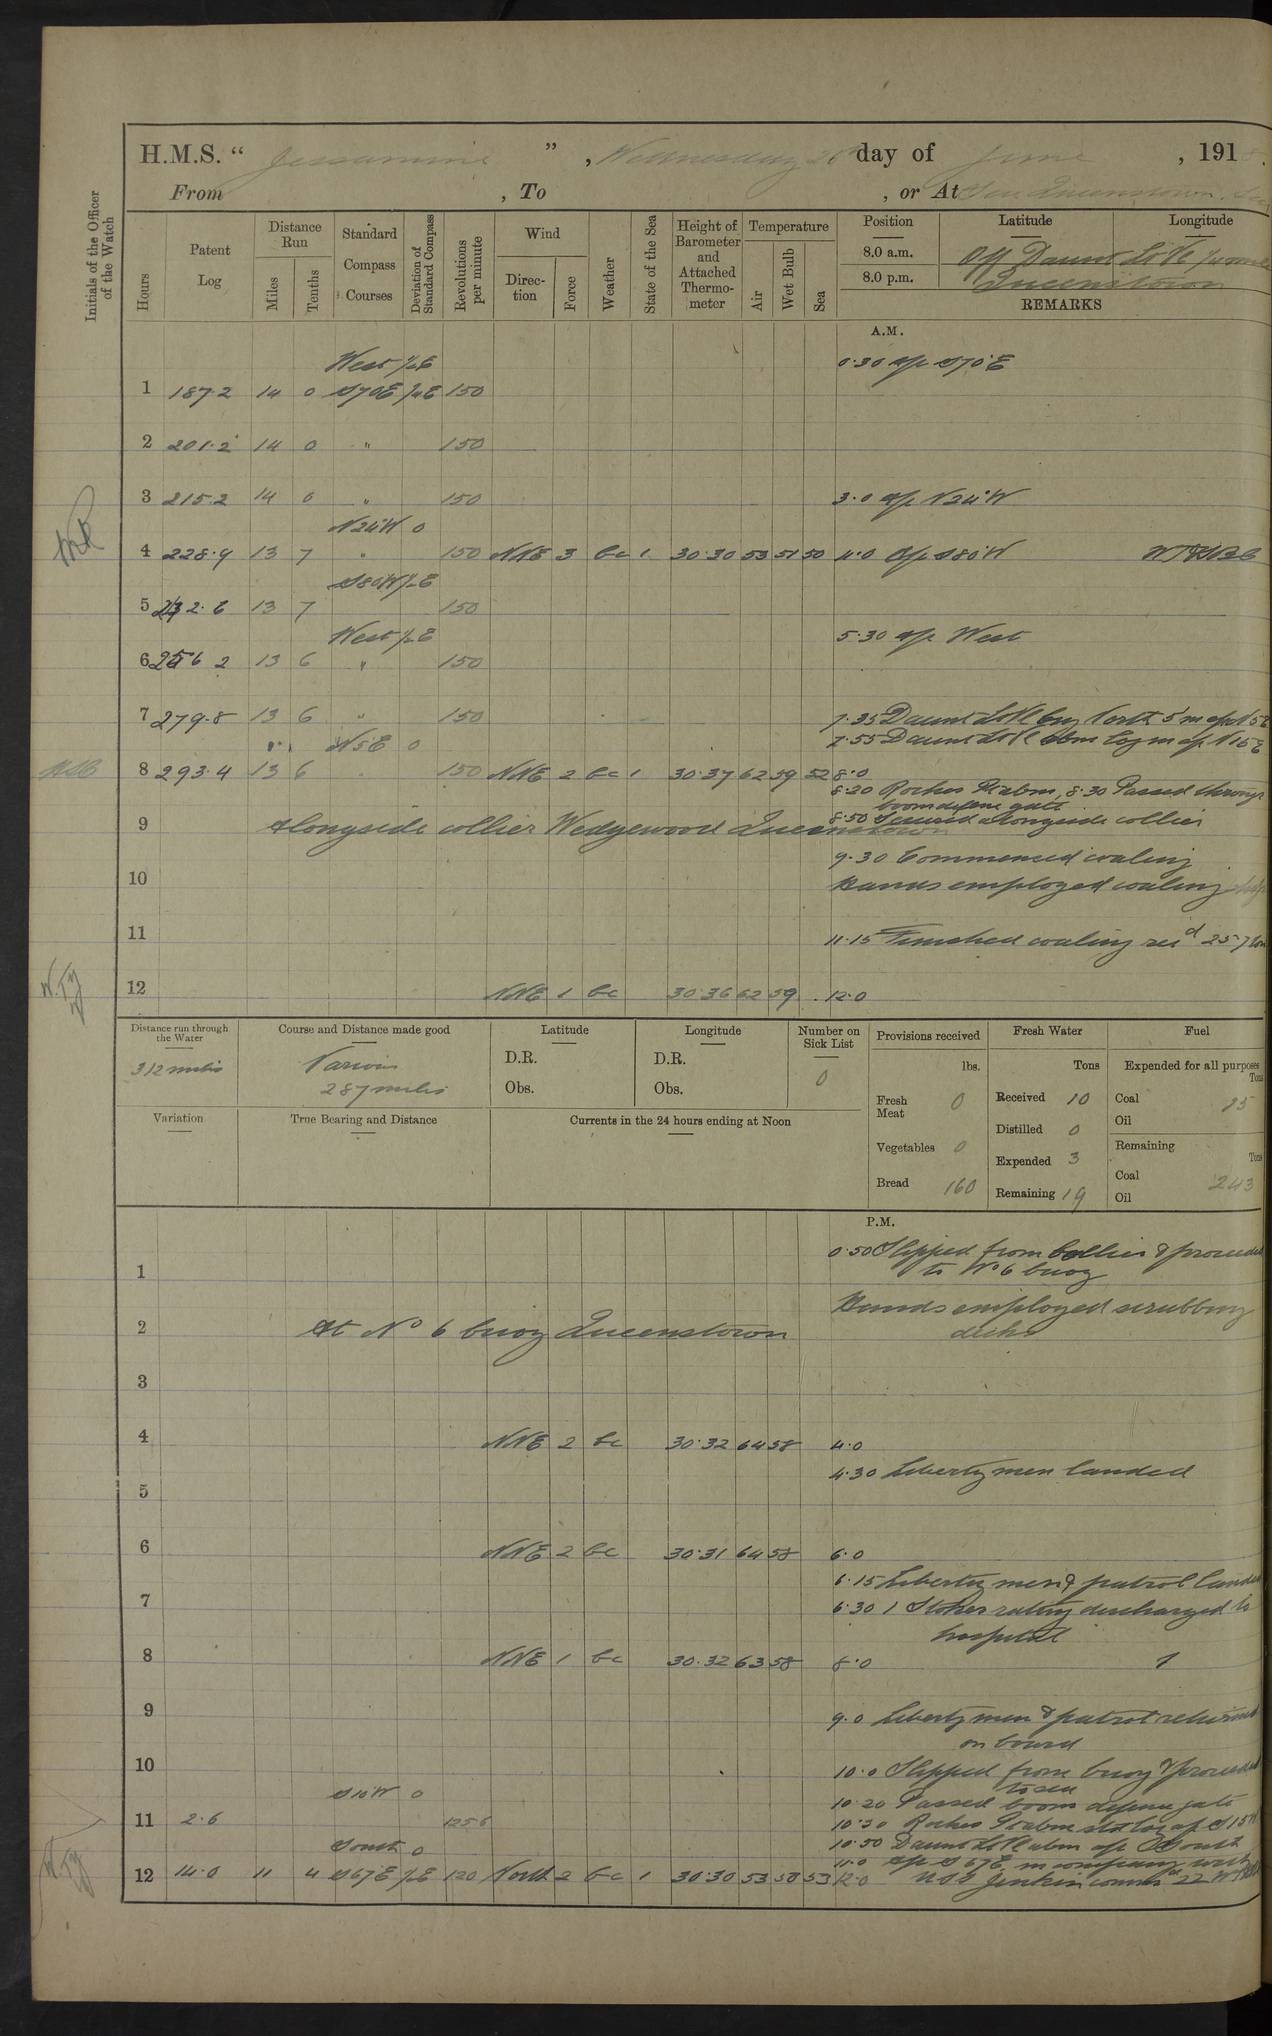 H.M.S. “ Jessamine ” , Wednesday 26th day of June , 191
From , To , or At Sea Queenstown. Sea
Initials of the Officer of the Watch
Hours
Patent Log
Distance Run
Miles
Tenths
Standard Compass Courses
Deviation of Standard Compass
Revolutions per minute
Wind
Direction
Force
Weather
State of the Sea
Height of Barometer and Attached Thermometer
Temperature
Air
Wet Bulb
Sea
Position Latitude Longitude
8.0 a.m. Off Daunt Lt Vl
8.0 p.m. Queenstown
REMARKS
A.M.
West ½E 0·30 a/c S70°E
1 187·2 14 0 S70E ½E 150
2 201·2 14 0 " 150
3 215·2 14 0 " 150 3·0 a/c N24°W
N24°W 0
4 228·9 13 7 " 150 NNE 3 bc 1 30·30 53 51 50 4·0 a/c S80°W
S80W ½E
5 242·6 13 7 150
West ½E 5·30 a/c West
6 256 2 13 6 " 150
7 279·8 13 6 " 150 7·35 Daunt Lt Vl brg North 5' m a/c N5E
N5E 0 7·55 Daunt Lt Vl abm log m a/c N15E
8 293·4 13 6 . 150 NNE 2 bc 1 30·37 62 59 52 8·0
8·20 Roches Pt abm, 8·30 Passed through
boom defence gate
9 Alongside collier Wedgewood Queenstown 8·50 Secured alongside collier
9·30 Commenced coaling
10 Hands employed coaling ship
11 11·15 Finished coaling recd 257 tons
12 NNE 1 bc 30·36 62 59 12·0
Distance run through the Water
312 miles
Course and Distance made good
Various
287 miles
Latitude
D.R.
Obs.
Longitude
D.R.
Obs.
Number on Sick List
0
Variation
True Bearing and Distance
Currents in the 24 hours ending at Noon
Provisions received
lbs.
Fresh Meat 0
Vegetables 0
Bread 160
Fresh Water
Tons
Received 10
Distilled 0
Expended 3
Remaining 19
Fuel
Expended for all purposes
Tons
Coal
Oil
Remaining
Tons
Coal 243
Oil
P.M.
0·50 Slipped from Collier & proceeded
1 to No 6 buoy
Hands employed scrubbing
2 At No 6 buoy Queenstown decks
3
4 NNE 2 bc 30·32 64 58 4·0
4·30 Liberty men landed
5
6 NNE 2 bc 30·31 64 58 6·0
6·15 Liberty men & patrol landed
7 6·30 1 Stoker rating discharged to
hospital
8 NNE 1 bc 30·32 63 58 8·0 1
9 9·0 Liberty men & patrol returned
on board
10 10·0 Slipped from buoy & proceeded
to sea
S10W 0 10·20 Passed boom defence gate
11 2·6 125·6 10·30 Roches Pt abm set log a/c S15W
South 0 10·50 Daunt Lt Vl abm a/c South
11·0 a/c S67E in company with
12 14·0 11 4 S67E ½E 120 North 2 bc 1 30·30 53 50 53 12·0 USS Jenkins